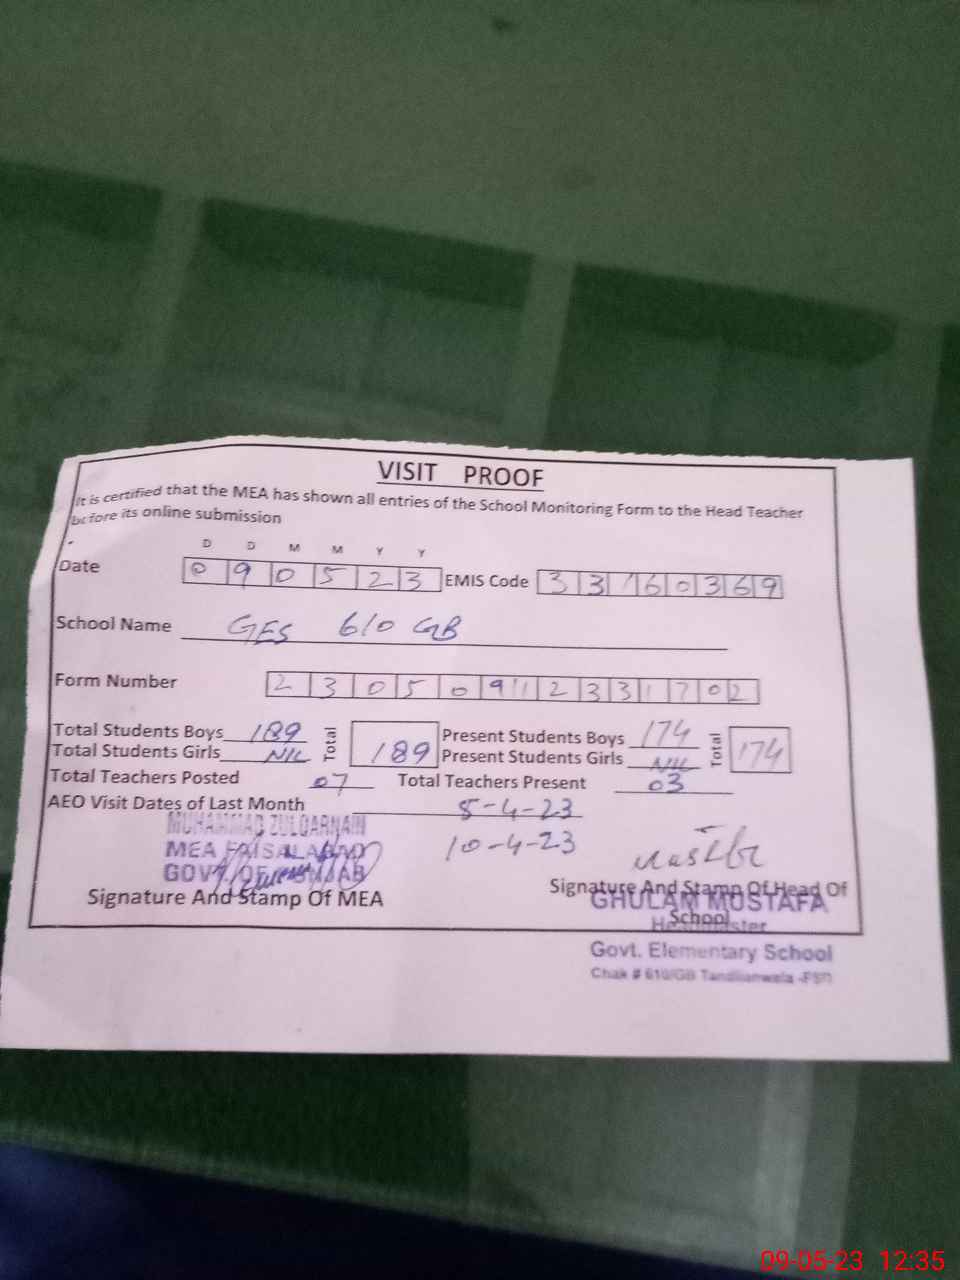 VISIT PROOF
It is certified that the MEA has shown all entries of the School Monitoring Form to the Head Teacher
before its online submission
D D M M Y Y
Date 090523 EMIS Code 33160369
School Name GES 610 GB
Form Number 23050912331702
Total Students Boys 189 Total 189 Present Students Boys 174 Total 174
Total Students Girls NIL Present Students Girls NIL
Total Teachers Posted 07 Total Teachers Present 03
AEO Visit Dates of Last Month 8-4-23
10-4-23
MUHAMMAD ZULQARNAIN
MEA FAISALABAD
GOVT. OF PUNJAB
Signature And Stamp Of MEA
Signature And Stamp Of Head Of
School
GHULAM MUSTAFA
Headmaster
Govt. Elementary School
Chak # 610/GB Tandlianwala -FSD
09-05-23 12:35